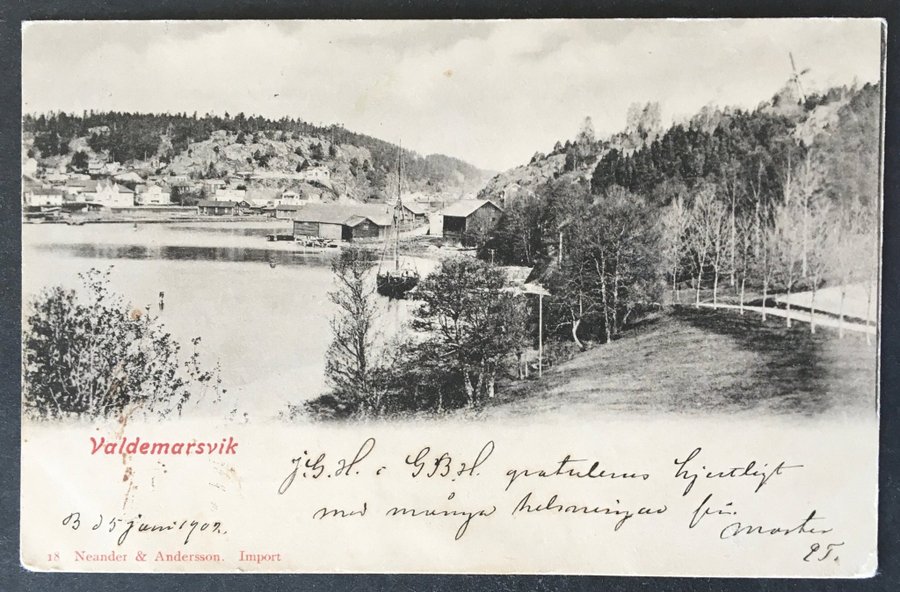 Valdemarsvik
J.G.H. & G.B.H. gratuleras hjertligt
med många helsningar fr.
Moster
B d 5 juni 1902.
18 Neander & Andersson. Import